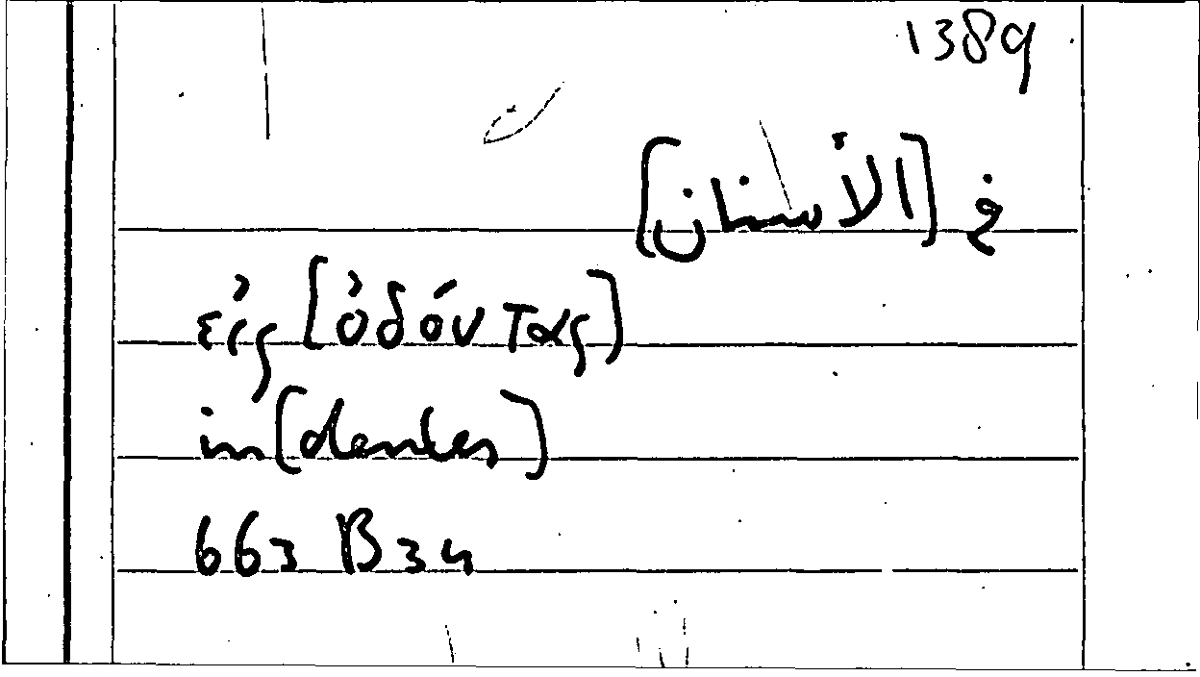 1389
في [الأسنان]
εἰς [ὀδόντας]
in [dentes]
663 B 34